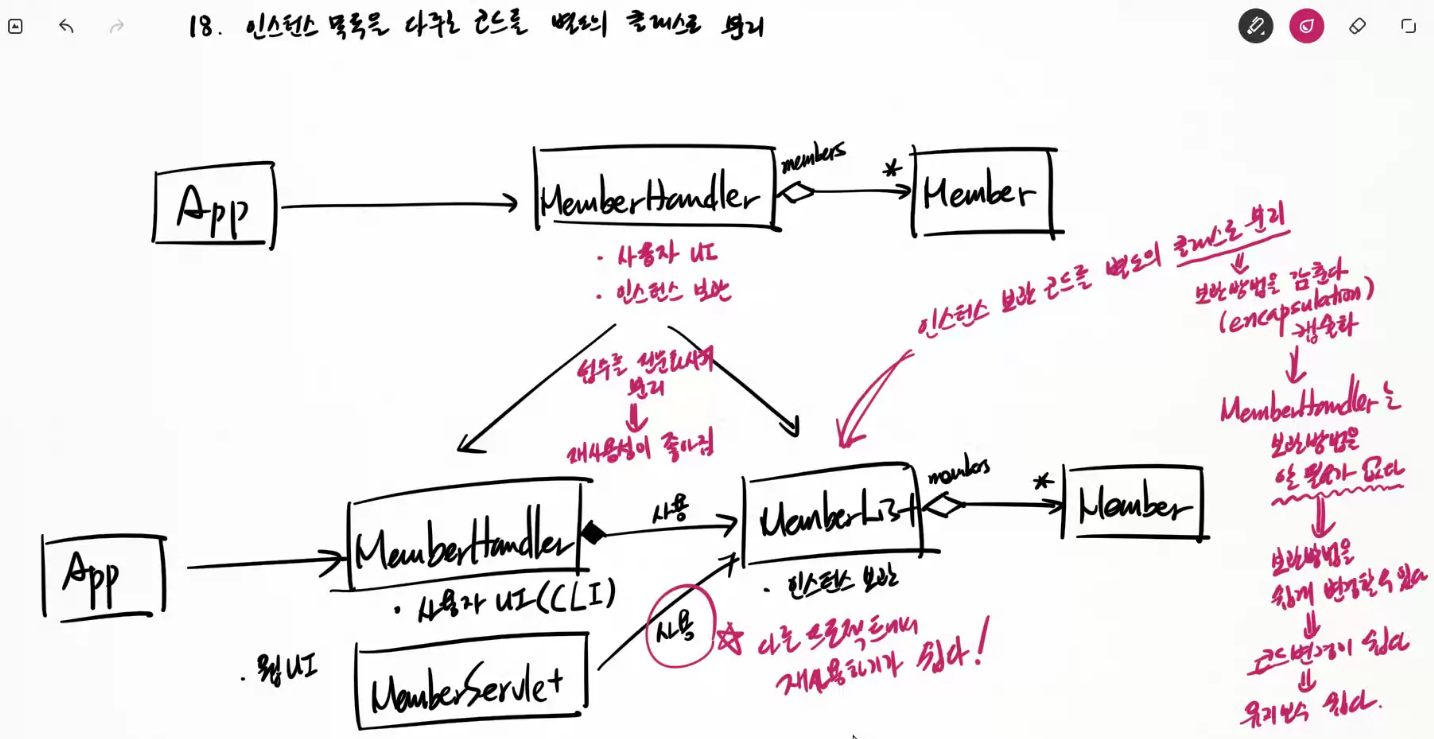 18. 인스턴스 목록을 다루는 코드를 별도의 클래스로 분리
App
MemberHandler
members
*
Member
· 사용자 UI
· 인스턴스 보관
인스턴스 보관 코드를 별도의 클래스로 분리
보관방법을 감춘다
(encapsulation)
캡슐화
MemberHandler는
보관방법을
알 필요가 없다
보관방법을
쉽게 변경할 수 있다
코드변경이 쉽다
유지보수 쉽다.
업무를 전문화시켜
분리
재사용성이 좋아짐
App
MemberHandler
사용
MemberList
members
*
Member
· 사용자 UI(CLI)
· 인스턴스 보관
사용
다른 프로젝트에서
재사용하기가 쉽다!
· 웹UI
MemberServlet